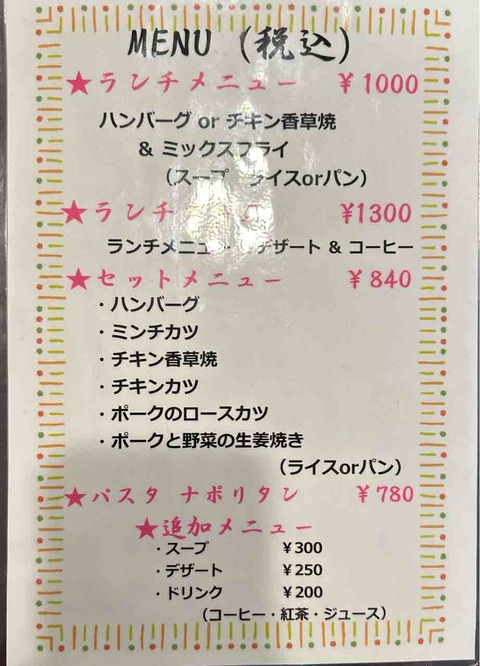 MENU (税込)
★ランチメニュー ￥1000
ハンバーグ or チキン香草焼
& ミックスフライ
(スープ ライスorパン)
★ランチ ￥1300
ランチメニュー・デザート & コーヒー
★セットメニュー ￥840
・ハンバーグ
・ミンチカツ
・チキン香草焼
・チキンカツ
・ポークのロースカツ
・ポークと野菜の生姜焼き
(ライスorパン)
★パスタ ナポリタン ￥780
★追加メニュー
・スープ ￥300
・デザート ￥250
・ドリンク ￥200
(コーヒー・紅茶・ジュース)